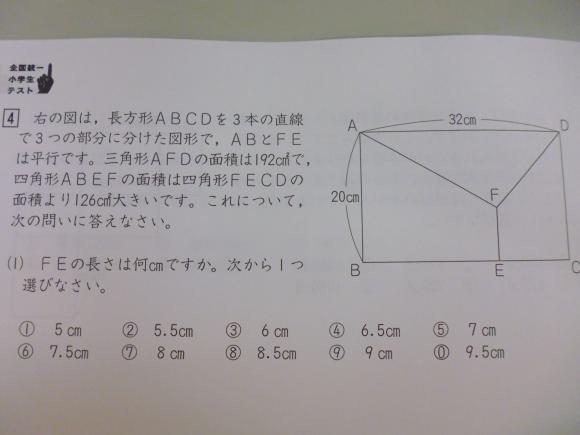 全国統一
小学生
テスト
4 右の図は，長方形ＡＢＣＤを３本の直線
で３つの部分に分けた図形で，ＡＢとＦＥ
は平行です。三角形ＡＦＤの面積は192㎠で，
四角形ＡＢＥＦの面積は四角形ＦＥＣＤの
面積より126㎠大きいです。これについて，
次の問いに答えなさい。
32cm
A
D
F
20cm
B
E
C
(1) ＦＥの長さは何cmですか。次から１つ
選びなさい。
① 5cm ② 5.5cm ③ 6cm ④ 6.5cm ⑤ 7cm
⑥ 7.5cm ⑦ 8cm ⑧ 8.5cm ⑨ 9cm ⓪ 9.5cm